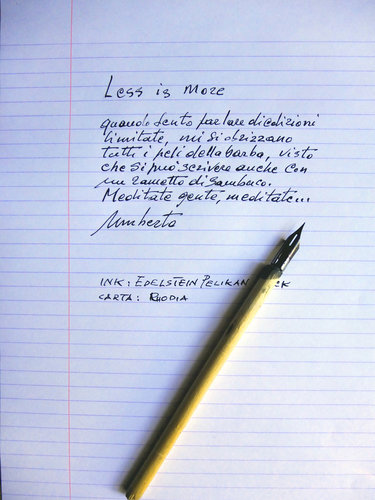 Less is more
quando sento parlare di edizioni
limitate, mi si drizzano
tutti i peli della barba, visto
che si può scrivere anche con
un rametto di sambuco.
Meditate gente, meditate...
Umberto
INK: EDELSTEIN PELIKAN
CARTA: RHODIA